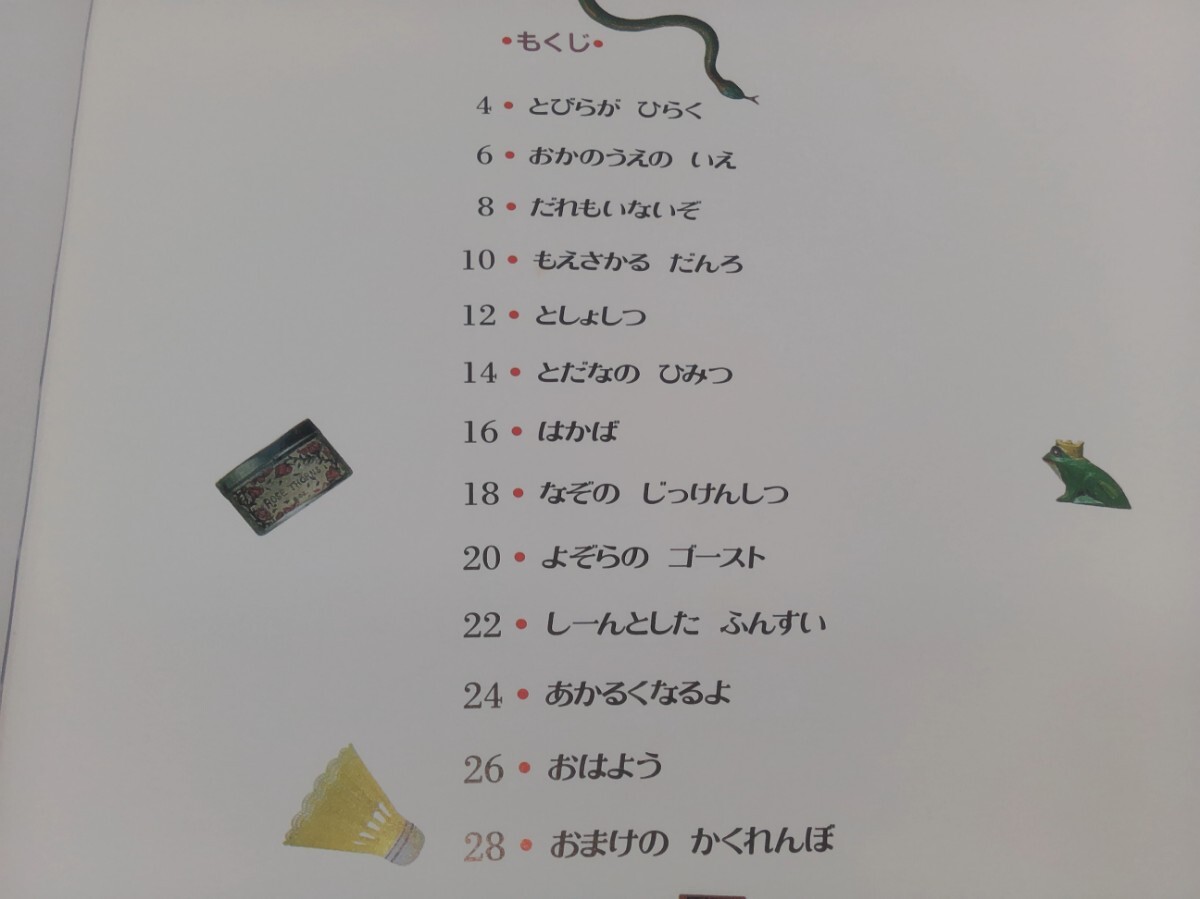 •もくじ•
4 • とびらが ひらく
6 • おかのうえの いえ
8 • だれもいないぞ
10 • もえさかる だんろ
12 • としょしつ
14 • とだなの ひみつ
16 • はかば
18 • なぞの じっけんしつ
20 • よぞらの ゴースト
22 • しーんとした ふんすい
24 • あかるくなるよ
26 • おはよう
28 • おまけの かくれんぼ
ROSE THORNS